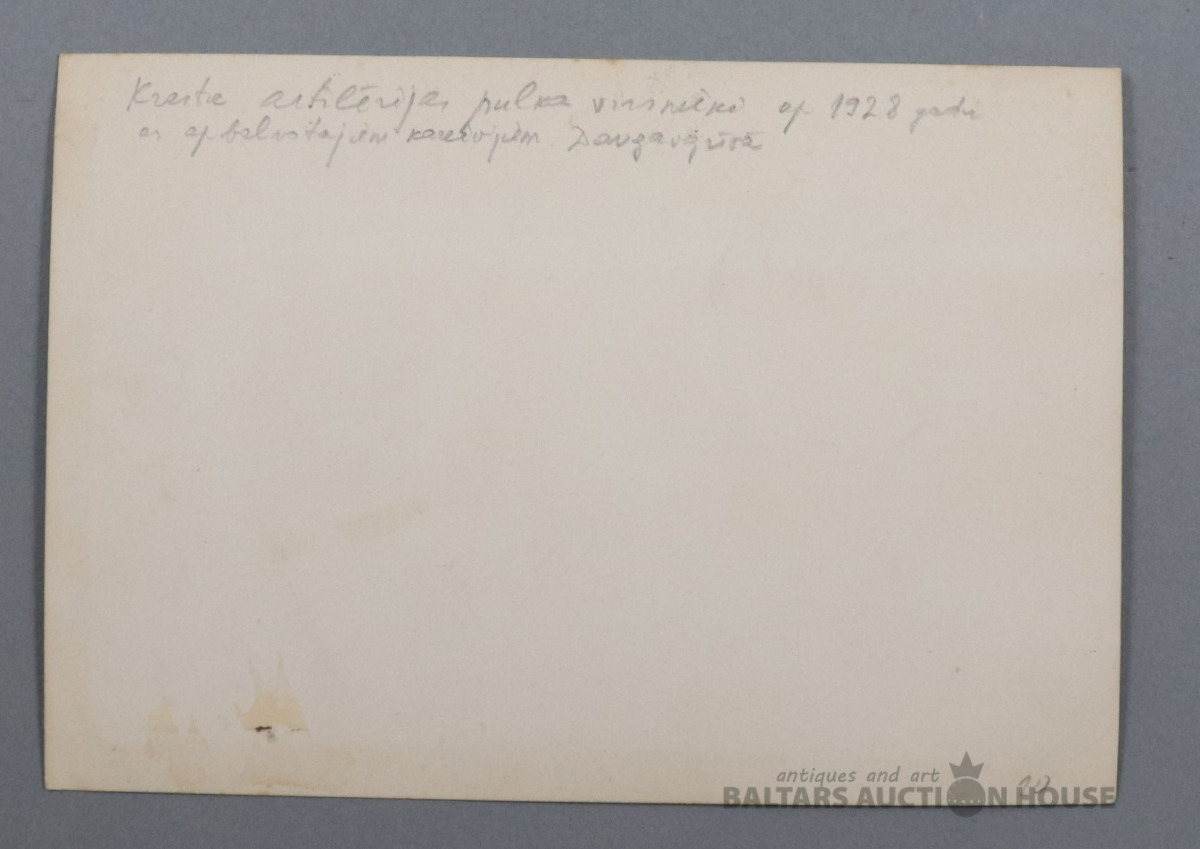 Krasta artilērijas pulka virsnieki ap 1928 gadu
ar apbalvotajiem kareivjiem. Daugavgrīvā
antiques and art
BALTARS AUCTION HOUSE